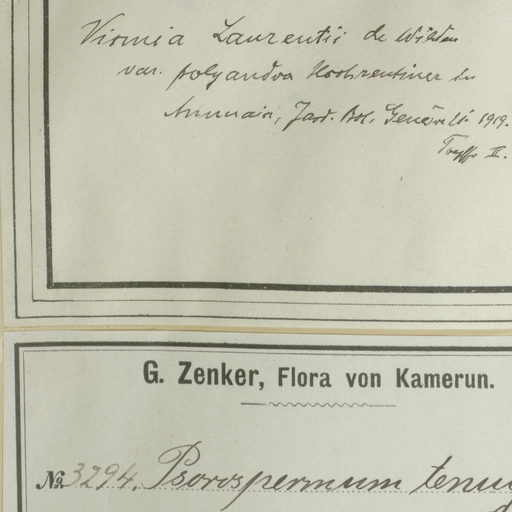 Vismia Laurentii de Wildem
var. polyandra Hochreutiner in
Annuair, Jard. Bot. Genève 1919.
II.
G. Zenker, Flora von Kamerun.
№ 3294. Psorospermum tenu